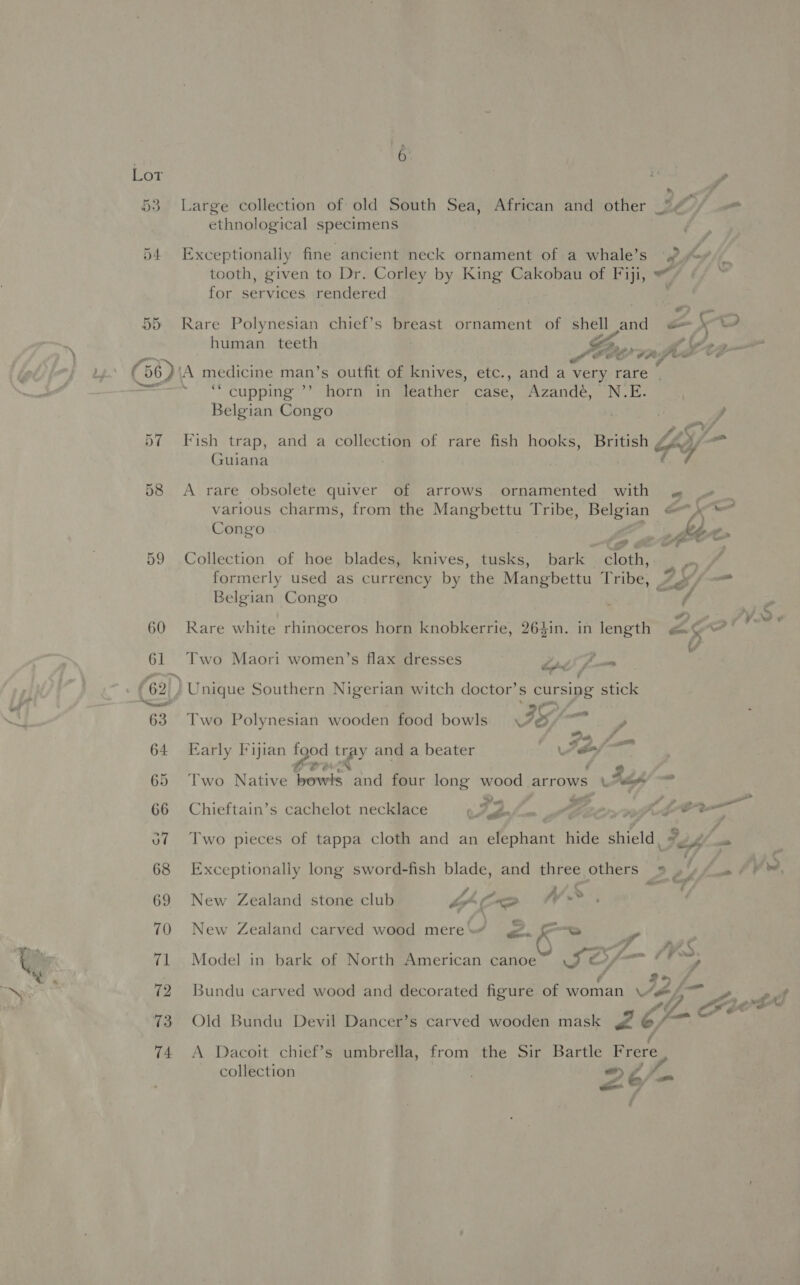 6
Lot
53 Large collection of old South Sea, African and other
ethnological specimens
54 Exceptionally fine ancient neck ornament of a whale's
tooth, given to Dr. Corley by King Cakobau of Fiji,
for services rendered
55 Rare Polynesian chief's breast ornament of shell and
human teeth
(56) A medicine man's outfit of knives, etc., and a very rare
“ cupping ” horn in leather case, Azandé, N.E.
Belgian Congo
57 Fish trap, and a collection of rare fish hooks, British
Guiana
58 A rare obsolete quiver of arrows ornamented with
various charms, from the Mangbettu Tribe, Belgian
Congo
59 Collection of hoe blades, knives, tusks, bark cloth,
formerly used as currency by the Mangbettu Tribe,
Belgian Congo
60 Rare white rhinoceros horn knobkerrie, 26½in. in length
61 Two Maori women's flax dresses
(62) Unique Southern Nigerian witch doctor's cursing stick
63 Two Polynesian wooden food bowls
64 Early Fijian food tray and a beater
65 Two Native bowls and four long wood arrows
66 Chieftain's cachelot necklace
67 Two pieces of tappa cloth and an elephant hide shield
68 Exceptionally long sword-fish blade, and three others
69 New Zealand stone club
70 New Zealand carved wood mere
71 Model in bark of North American canoe
72 Bundu carved wood and decorated figure of woman
73 Old Bundu Devil Dancer's carved wooden mask 26/-
74 A Dacoit chief's umbrella, from the Sir Bartle Frere
collection 26/-